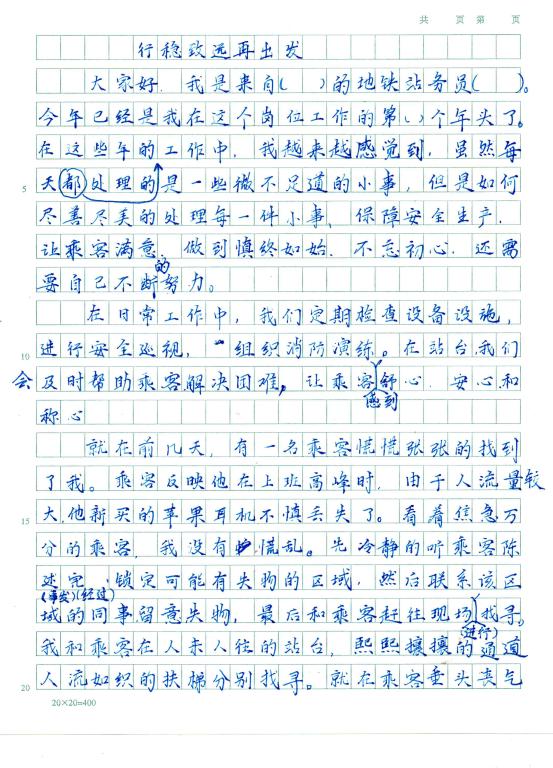 共 页 第 页
行稳致远再出发
大家好，我是来自( )的地铁站务员( )。
今年已经是我在这个岗位工作的第( )个年头了。
在这些年的工作中，我越来越感觉到，虽然每
天都处理的是一些微不足道的小事，但是如何
5
尽善尽美的处理每一件小事、保障安全生产，
让乘客满意、做到慎终如始、不忘初心，还需
的
要自己不断努力。
在日常工作中，我们定期检查设备设施，
进行安全巡视，组织消防演练。在站台，我们
10
会及时帮助乘客解决困难，让乘客舒心、安心和
感到
称心
就在前几天，有一名乘客慌慌张张的找到
了我。乘客反映他在上班高峰时，由于人流量较
大，他新买的苹果耳机不慎丢失了。看着焦急万
15
分的乘客，我没有慌乱。先冷静的听乘客陈
述完，锁定可能有失物的区域，然后联系该区
(事发)(经过)
域的同事留意失物，最后和乘客赶往现场找寻。
(进行)
我和乘客在人来人往的站台，熙熙攘攘的通道
人流如织的扶梯分别找寻。就在乘客垂头丧气
20
20×20=400